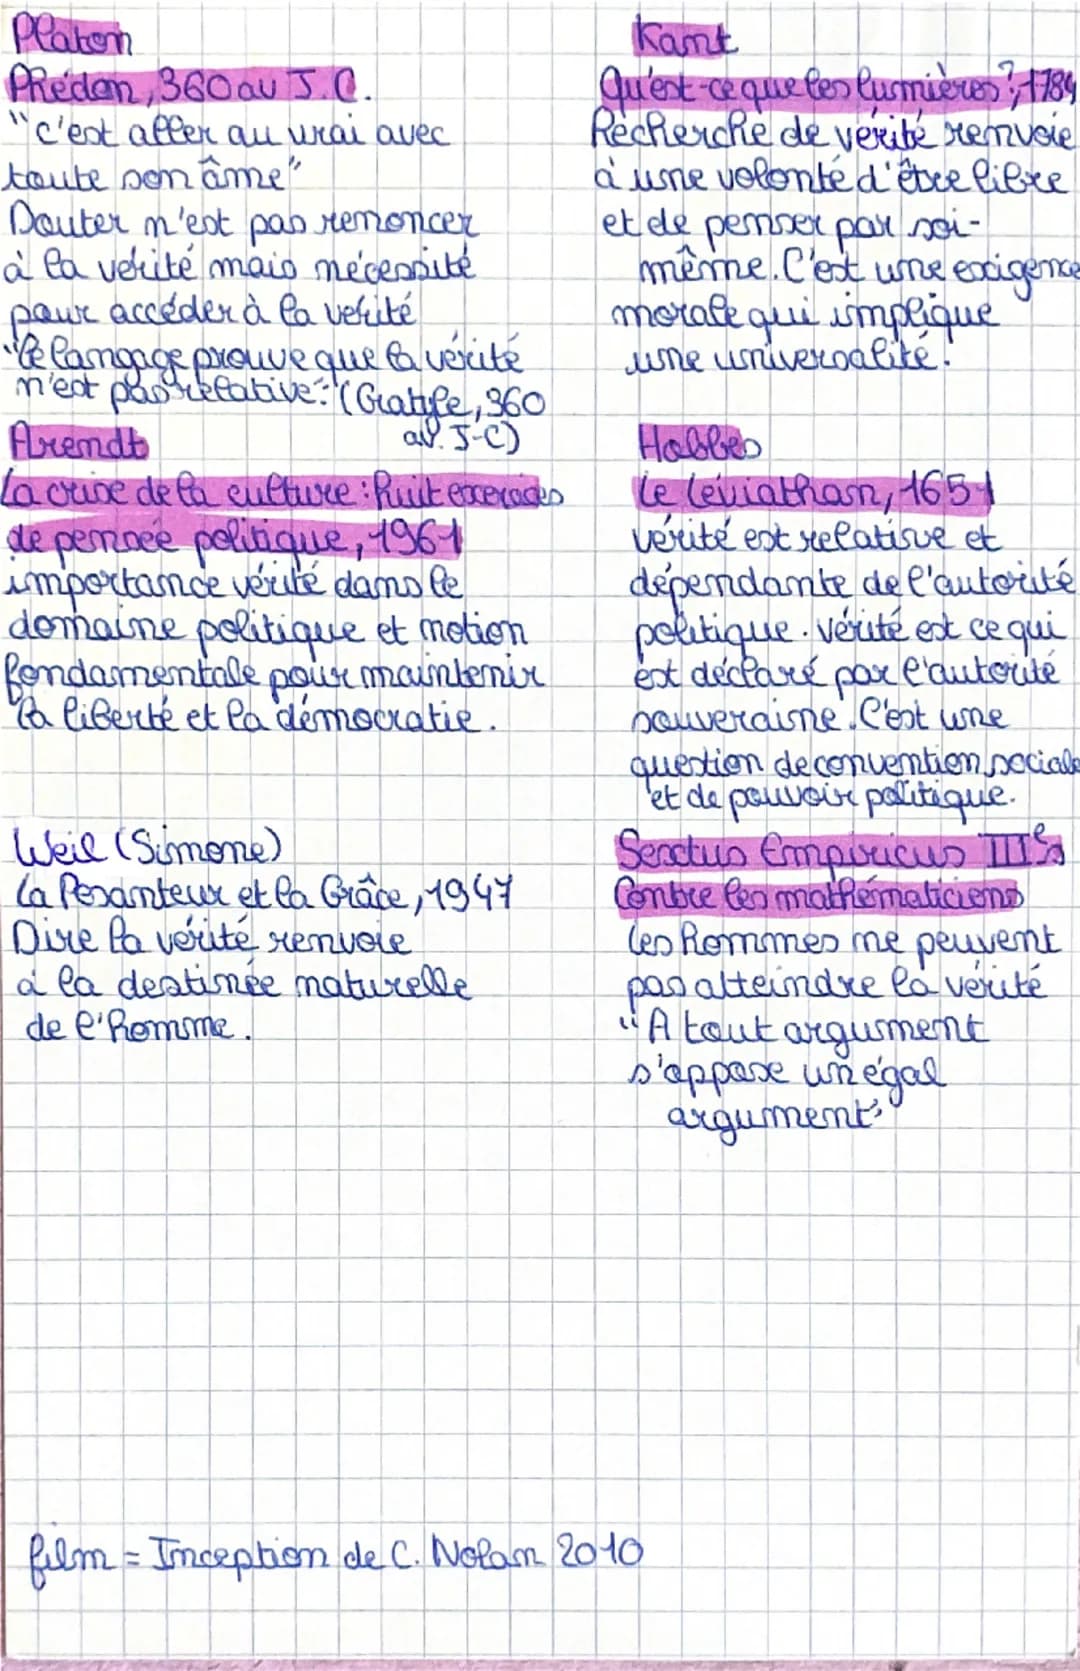 Platon
Phédon, 360 av J.C.
"c'est aller au vrai avec
toute son âme"
Douter n'est pas renoncer
à la vérité mais nécessité
pour accéder à la vérité
"le langage prouve que la vérité
n'est pas relative." (Cratyle, 360
av. J-C)
Arendt
La crise de la culture : huit exercices
de pensée politique, 1961
importance vérité dans le
domaine politique et notion
fondamentale pour maintenir
la liberté et la démocratie.
Weil (Simone)
La Pesanteur et la Grâce, 1947
Dire la vérité renvoie
à la destinée naturelle
de l'homme.
Kant
Qu'est-ce que les lumières ?, 1784
Recherche de vérité renvoie
à une volonté d'être libre
et de penser par soi-
même. C'est une exigence
morale qui implique
une universalité.
Hobbes
Le Léviathan, 1651
vérité est relative et
dépendante de l'autorité
politique. vérité est ce qui
est déclaré par l'autorité
souveraine. C'est une
question de convention sociale
et de pouvoir politique.
Sextus Empiricus IIIe s
Contre les mathématiciens
Les hommes ne peuvent
pas atteindre la vérité
"A tout argument
s'oppose un égal
argument"
film = Inception de C. Nolan 2010